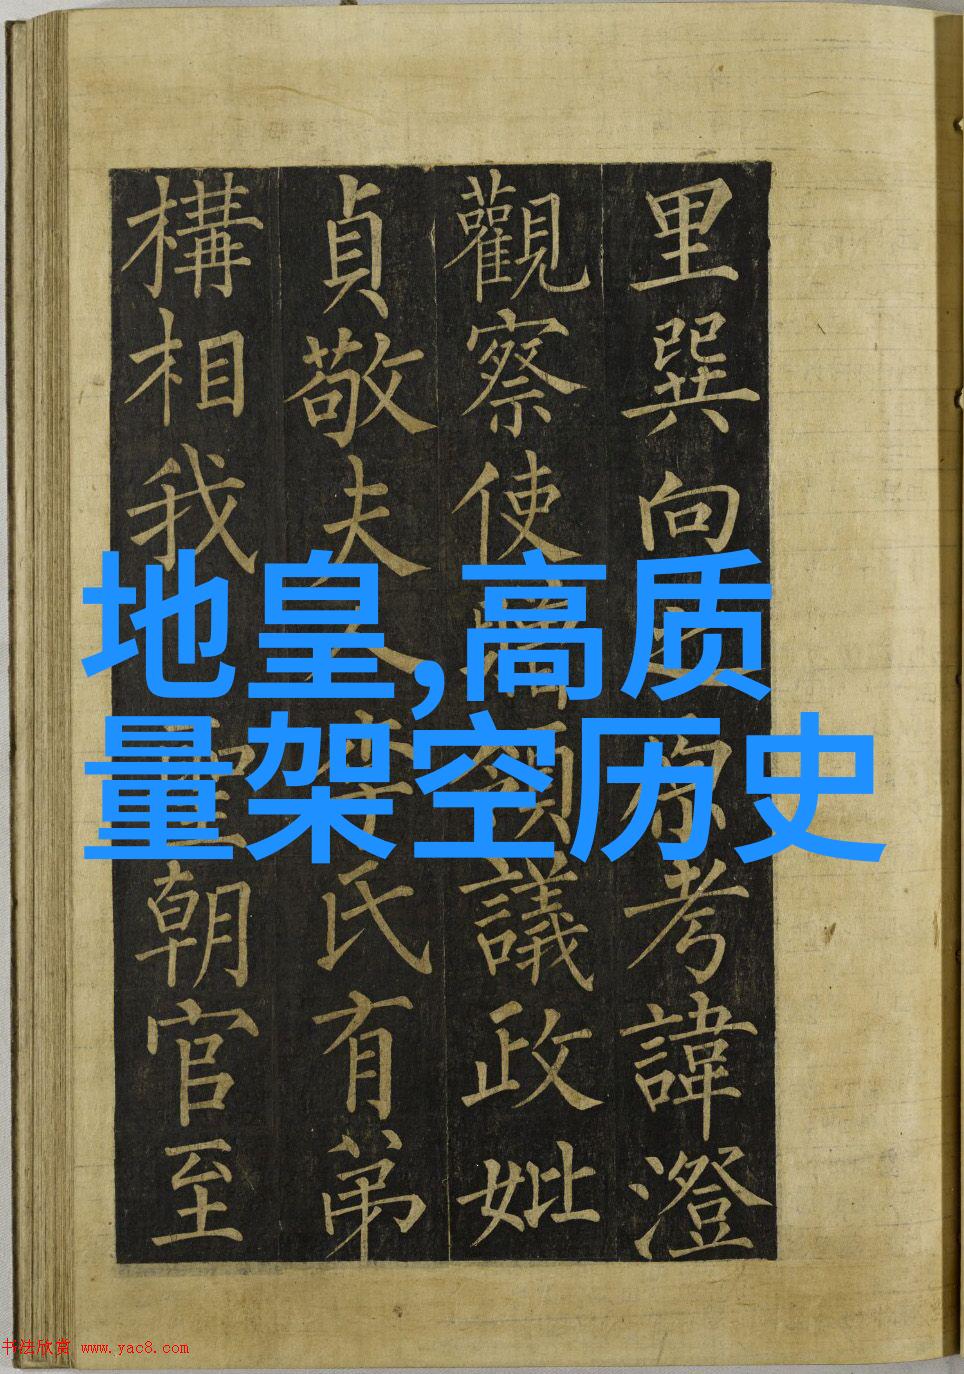 里巽向之原考諱澄
觀察使贈領議政妣
貞敬夫人李氏有弟
構相我聖朝官至
地皇,高质
量架空历史
书法欣赏 www.yac8.com